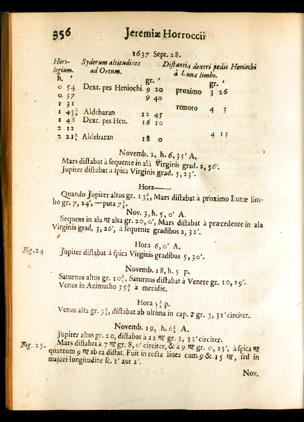 356 Jeremiæ Horroccii
1637 Sept. 28.
Horo-
logium. Syderum altitudines
ad Ortum. Distantia dextri pedis Heniochi
à Lunæ limbo.
h. ' gr. ' gr. '
0 54 Dext. pes Heniochi 9 20 proximo 3 26
0 57 9 40
1 31 remoto 4 3
1 45½ Aldebaran 12 45
1 48½ Dext. pes Hen. 16 10
2 12
2 21½ Aldebaran 18 0 4 15
Novemb. 2, h. 6, 35' A.
Mars distabat à sequente in alâ Virginis grad. 2, 56'.
Jupiter distabat à spica Virginis grad. 5, 23'.
Hora——
Quando Jupiter altus gr. 13¼, Mars distabat à proximo Lunæ lim-
bo gr. 7, 24',—puta 7½.
Nov. 3, h. 5, 0' A.
Sequens in ala ♍ alta gr. 20, 0', Mars distabat à præcedente in ala
Virginis grad. 3, 26', à sequente gradibus 2, 31'.
Hora 6, 0' A.
Fig. 24 Jupiter distabat à spica Virginis gradibus 5, 30'.
Novemb. 18, h. 5 p.
Saturnus altus gr. 10½, Saturnus distabat à Venere gr. 10, 29'.
Venus in Azimutho 35¼ à meridie.
Hora 5½ p.
Venus alta gr. 3½, distabat ab ultima in cap. gr. 3, 31' circiter.
Novemb. 19, h. 6¼ A.
Jupiter altus gr. 20, distabat à 22 ♍ gr. 3, 33' circiter.
Fig. 25. Mars distabat à 7 ♍ gr. 8, 0' circiter, & à 9 ♍ gr. 0, 25', à spica ♍
quantum 9 ♍ ab ea distat. Fuit in recta linea cum 9 & 15 ♍, sed in
majori longitudine sc. 1' aut 2'.
Nov.